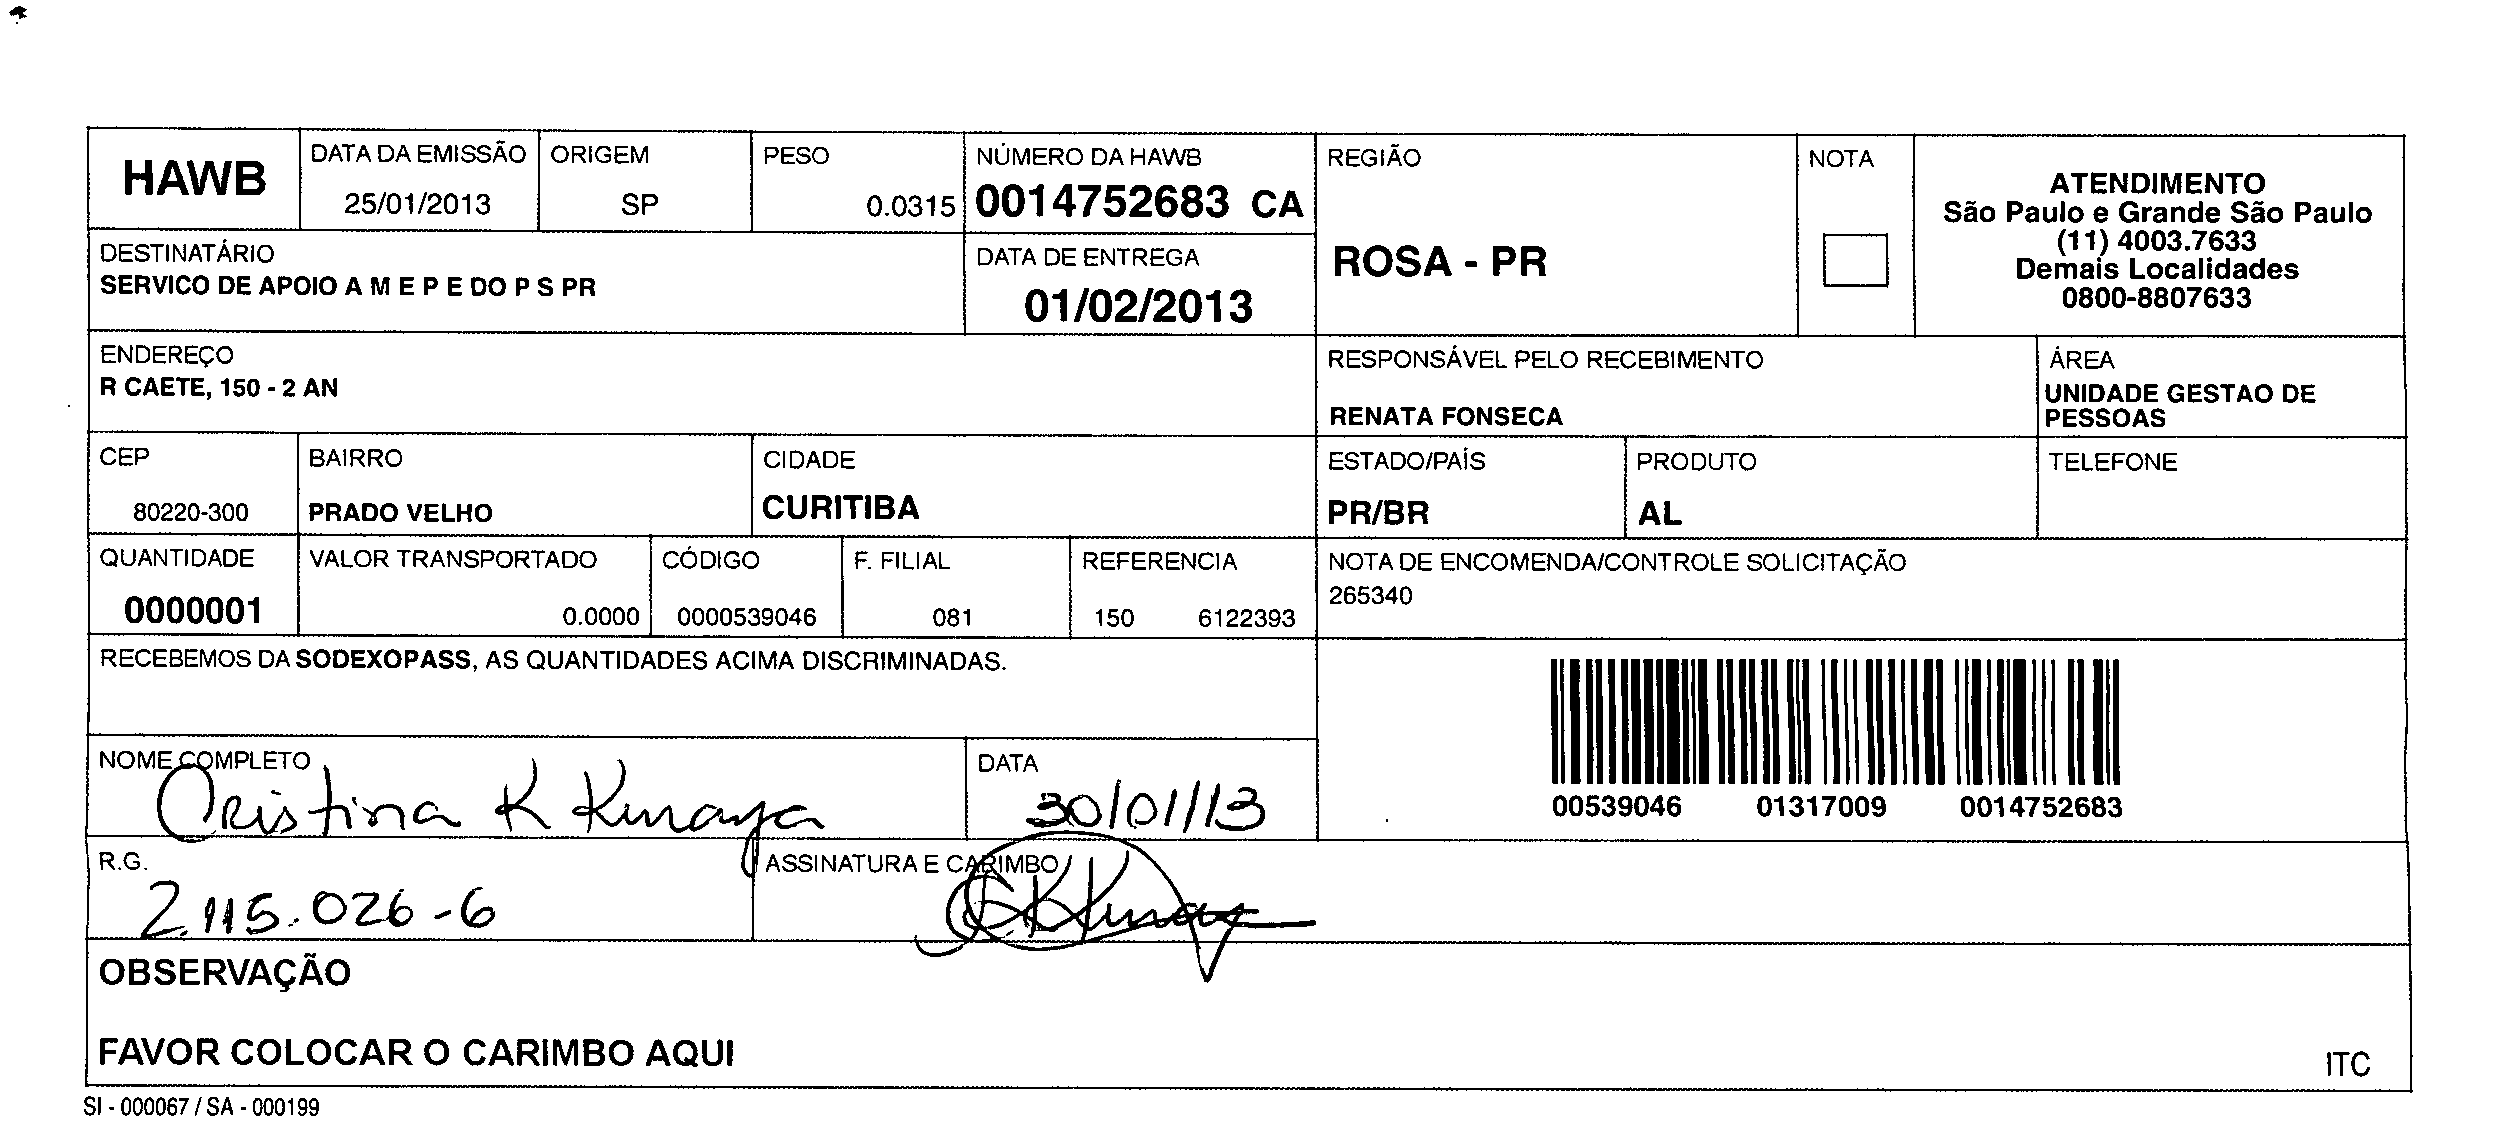 HAWB
DATA DA EMISSÃO
25/01/2013
ORIGEM
SP
PESO
0.0315
NÚMERO DA HAWB
0014752683 CA
REGIÃO
ROSA - PR
NOTA
ATENDIMENTO
São Paulo e Grande São Paulo
(11) 4003.7633
Demais Localidades
0800-8807633
DESTINATÁRIO
SERVICO DE APOIO A M E P E DO P S PR
DATA DE ENTREGA
01/02/2013
ENDEREÇO
R CAETE, 150 - 2 AN
RESPONSÁVEL PELO RECEBIMENTO
RENATA FONSECA
ÁREA
UNIDADE GESTAO DE
PESSOAS
CEP
80220-300
BAIRRO
PRADO VELHO
CIDADE
CURITIBA
ESTADO/PAÍS
PR/BR
PRODUTO
AL
TELEFONE
QUANTIDADE
0000001
VALOR TRANSPORTADO
0.0000
CÓDIGO
0000539046
F. FILIAL
081
REFERENCIA
150 6122393
NOTA DE ENCOMENDA/CONTROLE SOLICITAÇÃO
265340
RECEBEMOS DA SODEXOPASS, AS QUANTIDADES ACIMA DISCRIMINADAS.
00539046 01317009 0014752683
NOME COMPLETO
Cristina K Kmaya
DATA
30/01/13
R.G.
2.115.026-6
ASSINATURA E CARIMBO
OBSERVAÇÃO
FAVOR COLOCAR O CARIMBO AQUI
ITC
SI - 000067 / SA - 000199